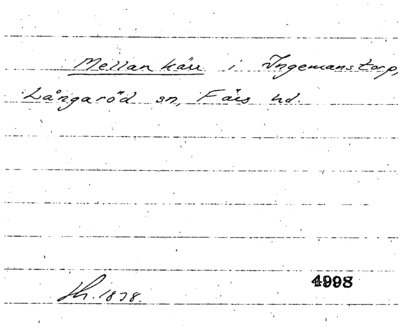 Mellankärr i Ingemanstorp,
Långaröd sn, Färs hd.
4998
1838.